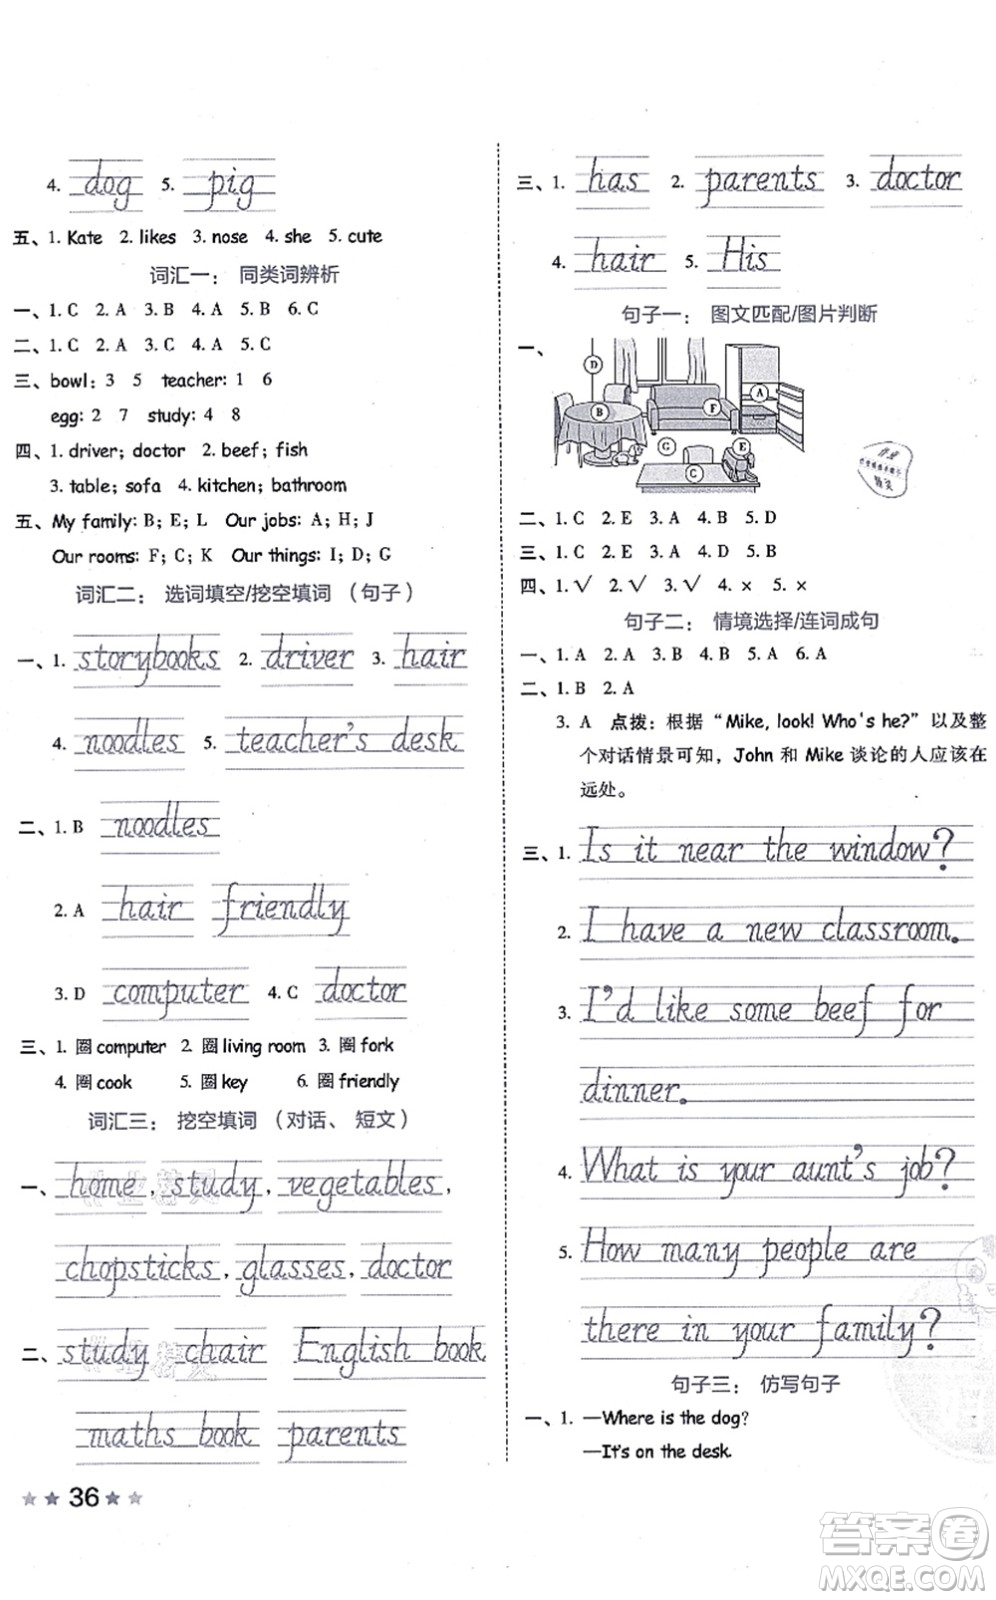 4. dog 5. pig
五、1. Kate 2. likes 3. nose 4. she 5. cute
词汇一： 同类词辨析
一、1. C 2. A 3. B 4. A 5. B 6. C
二、1. C 2. A 3. C 4. A 5. C
三、bowl: 3 5 teacher: 1 6
egg: 2 7 study: 4 8
四、1. driver; doctor 2. beef; fish
3. table; sofa 4. kitchen; bathroom
五、My family: B; E; L Our jobs: A; H; J
Our rooms: F; C; K Our things: I; D; G
词汇二： 选词填空/挖空填词 （句子）
一、1. storybooks 2. driver 3. hair
4. noodles 5. teacher's desk
二、1. B noodles
2. A hair friendly
3. D computer 4. C doctor
三、1. 圈 computer 2. 圈 living room 3. 圈 fork
4. 圈 cook 5. 圈 key 6. 圈 friendly
词汇三： 挖空填词 （对话、 短文）
一、home, study, vegetables,
chopsticks, glasses, doctor
二、study chair English book
maths book parents
36
三、1. has 2. parents 3. doctor
4. hair 5. His
句子一： 图文匹配/图片判断
一、
D
A
B
F
G
E
C
二、1. C 2. E 3. A 4. B 5. D
三、1. C 2. E 3. A 4. D 5. B
四、1. √ 2. √ 3. √ 4. × 5. ×
句子二： 情境选择/连词成句
一、1. A 2. A 3. A 4. B 5. A 6. A
二、1. B 2. A
3. A 点拨：根据“Mike, look! Who's he?”以及整
个对话情景可知，John 和 Mike 谈论的人应该在
远处。
三、1. Is it near the window?
2. I have a new classroom.
3. I'd like some beef for
dinner.
4. What is your aunt's job?
5. How many people are
there in your family?
句子三： 仿写句子
一、1. —Where is the dog?
—It's on the desk.
答案圈
MXQE.COM